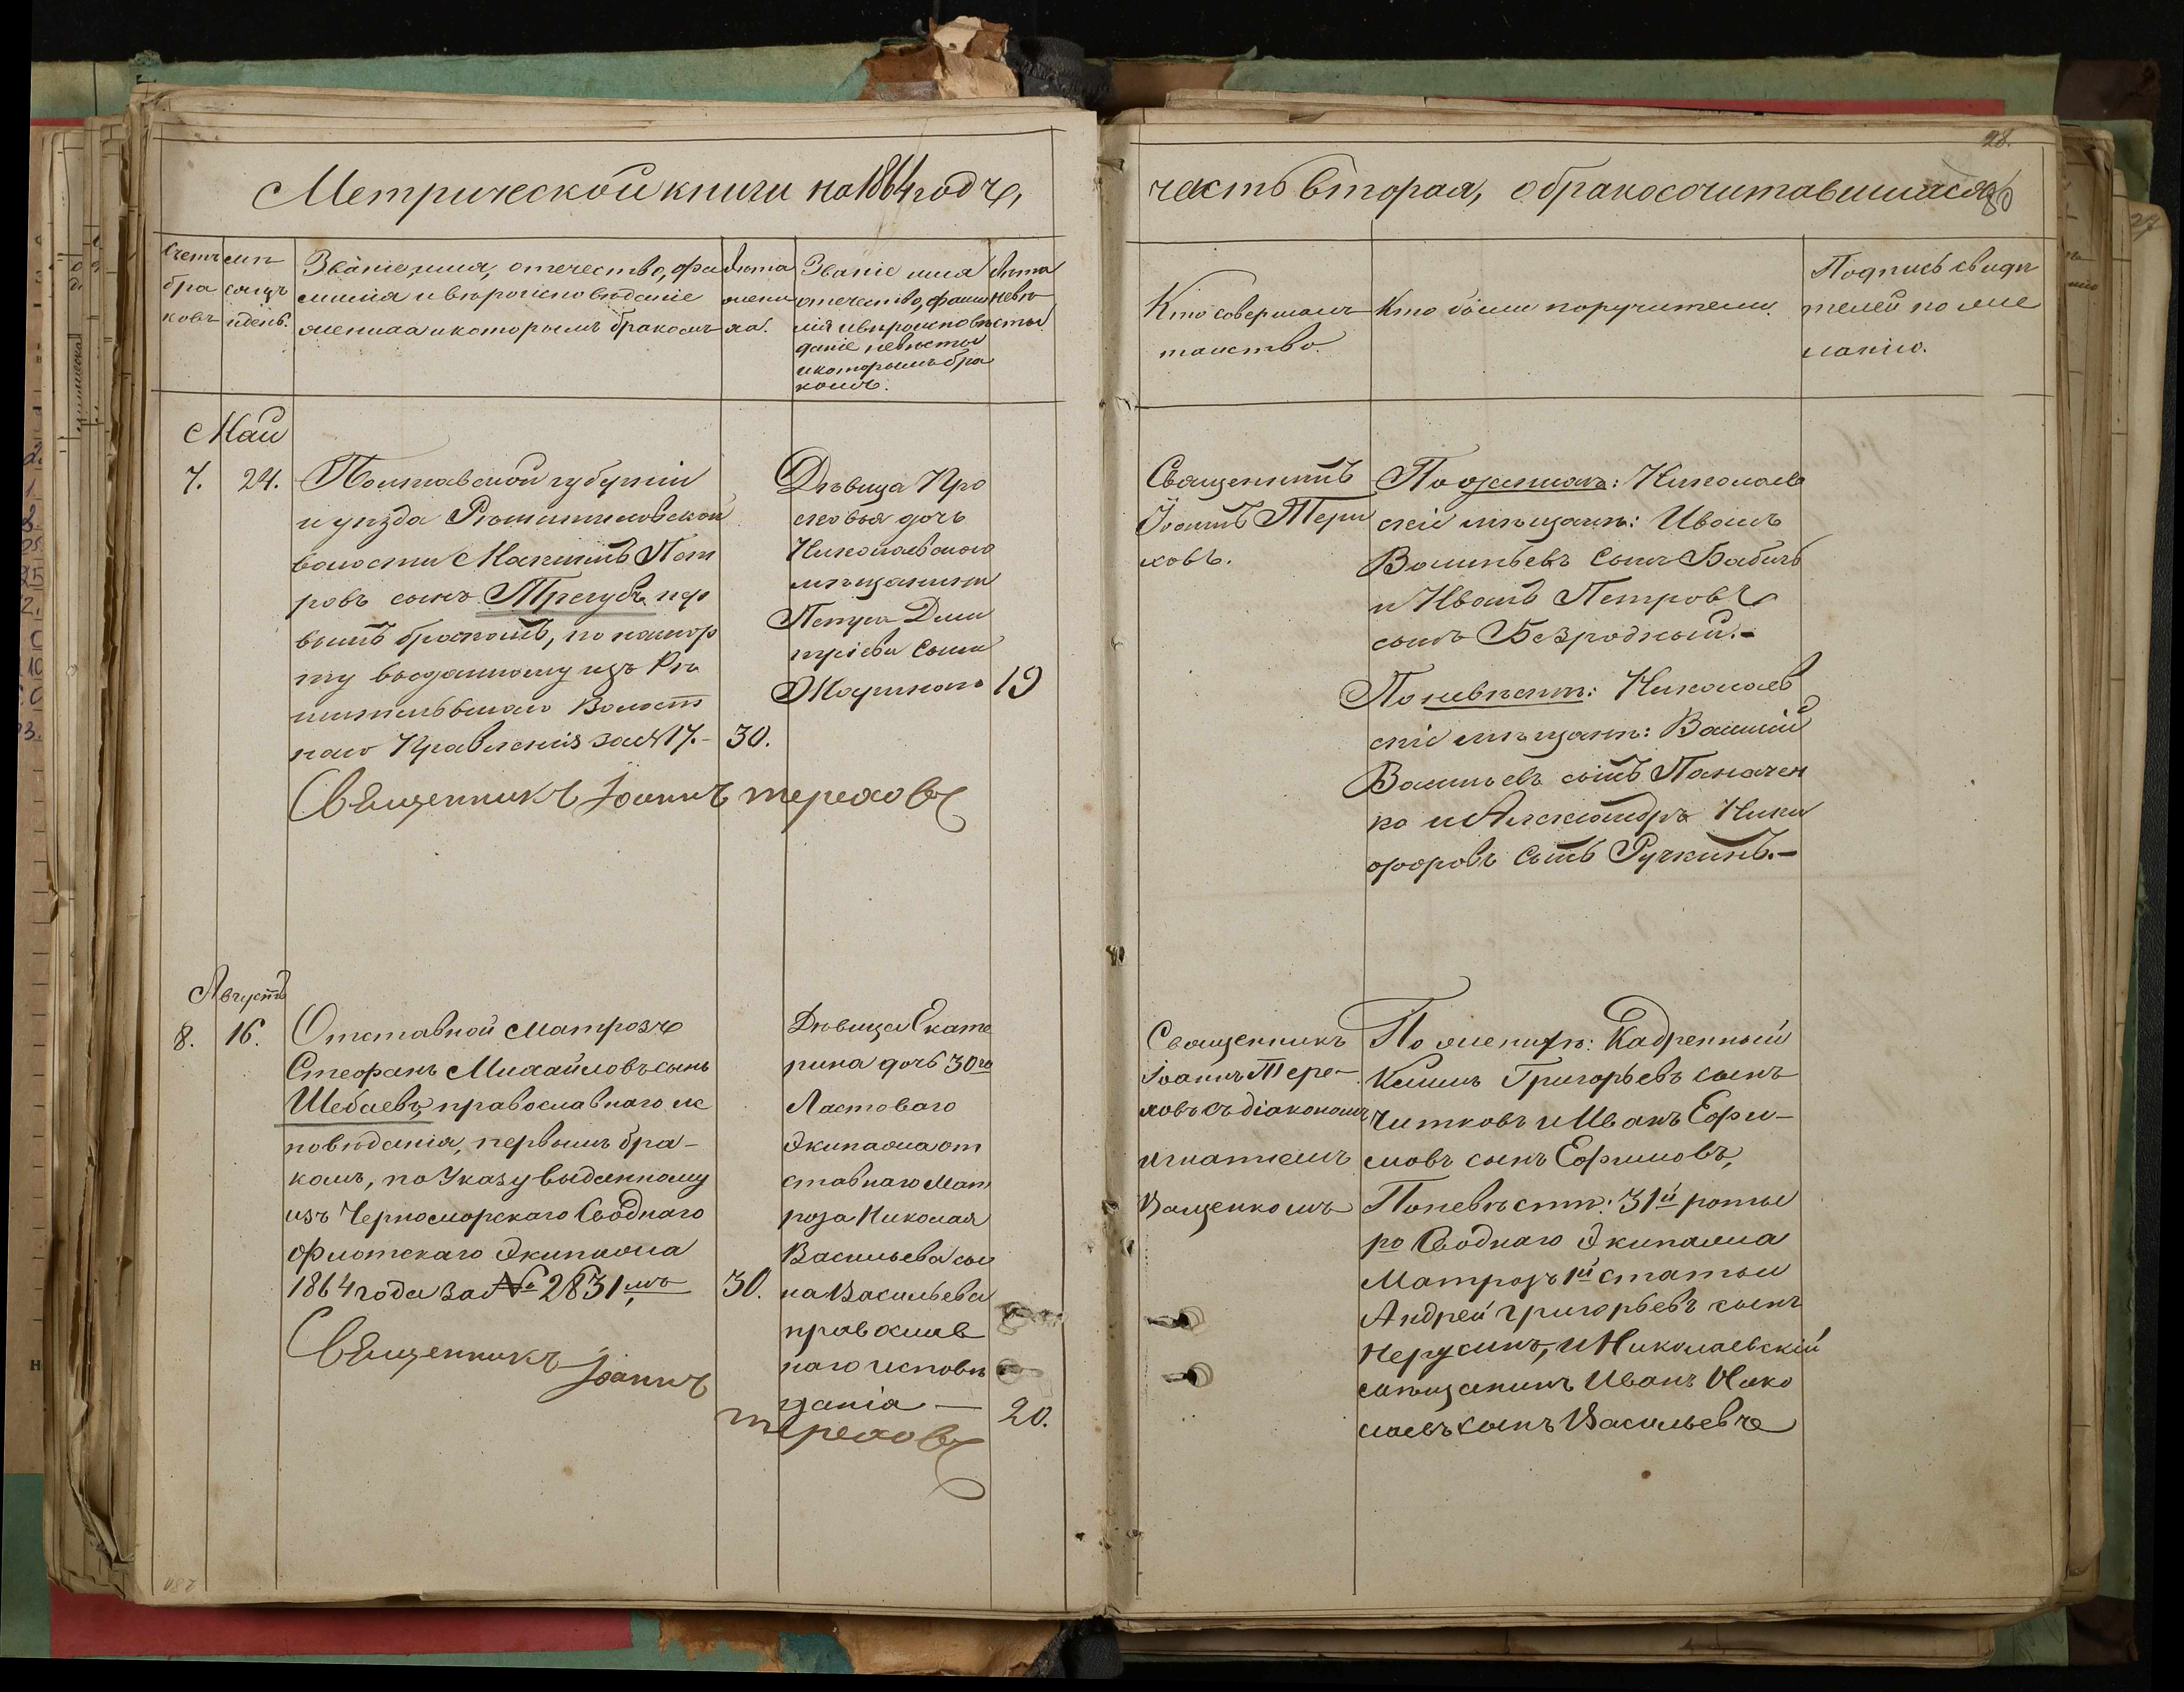 28.
Метрической книги на 1864 годъ,
часть вторая, о бракосочитавшихся
80
Счетъ бра ковъ
мѣ сяцъ и день.
Званіе, имя, отечество, фа
милія и вѣроисповѣданіе
жениха и которымъ бракомъ
Лѣта
жени
ха.
Званіе имя
отечество, фами
лія и вѣроисповѣ
даніе невѣсты
и которымъ бра
комъ.
Лѣта
невѣ
сты
Кто совершалъ
таинство.
Кто были поручители.
Подпись свидѣ
телей по же
ланію.
Май
7.
24.
Полтавской губерніи
и уѣзда
волости Мартинъ Пет
ровъ сынъ Трегубъ пер
вымъ бракомъ, по паспор
ту выданному изъ Рѣ
Волост
наго Правленія за № 17.-
30.
Дѣвица Про
сковья дочь
Николаевскаго
мѣщанина
Петра Дми
тріева сына
19
Священникъ Іоаннъ Тереховъ
Священникъ
Іоаннъ Тере
ховъ.
По женихѣ: Николаев
скіе мѣщане: Иванъ
Васильевъ сынъ Бабичъ
и Иванъ Петровъ
сынъ Безродный.-
По невѣстѣ: Николаев
скіе мѣщане: Василій
Васильевъ сынъ
ко и Александръ Ники
форовъ сынъ Ручкинъ.-
Августъ
8.
16.
Отставной Матрозъ
Стефанъ Михайловъ сынъ
Шебаевъ, православнаго ис
повѣданія, первымъ бра-
комъ, по Указу выданному
изъ Черноморскаго Своднаго
Флотскаго Экипажа
1864 года за № 2831мъ
30.
Дѣвица Екате
рина дочь 30го
Ластоваго
Экипажа от
ставнаго Мат
роза Николая
Васильева сы
на Васильева
православ
наго исповѣ
данія —
20.
Священникъ
Іоаннъ
Тереховъ
Священникъ
Іоаннъ Тере-
ховъ съ діакономъ
Игнатіемъ
Ващенкомъ
По женихѣ: Кадренный
Климъ Григорьевъ сынъ
Читковъ и Иванъ Ефи-
мовъ сынъ Ефимовъ,
По невѣстѣ: 31й роты
го Своднаго Экипажа
Матрозъ 1й статьи
Андрей Григорьевъ сынъ
и Николаевскій
мѣщанинъ Иванъ Нико
лаевъ сынъ Васильевъ